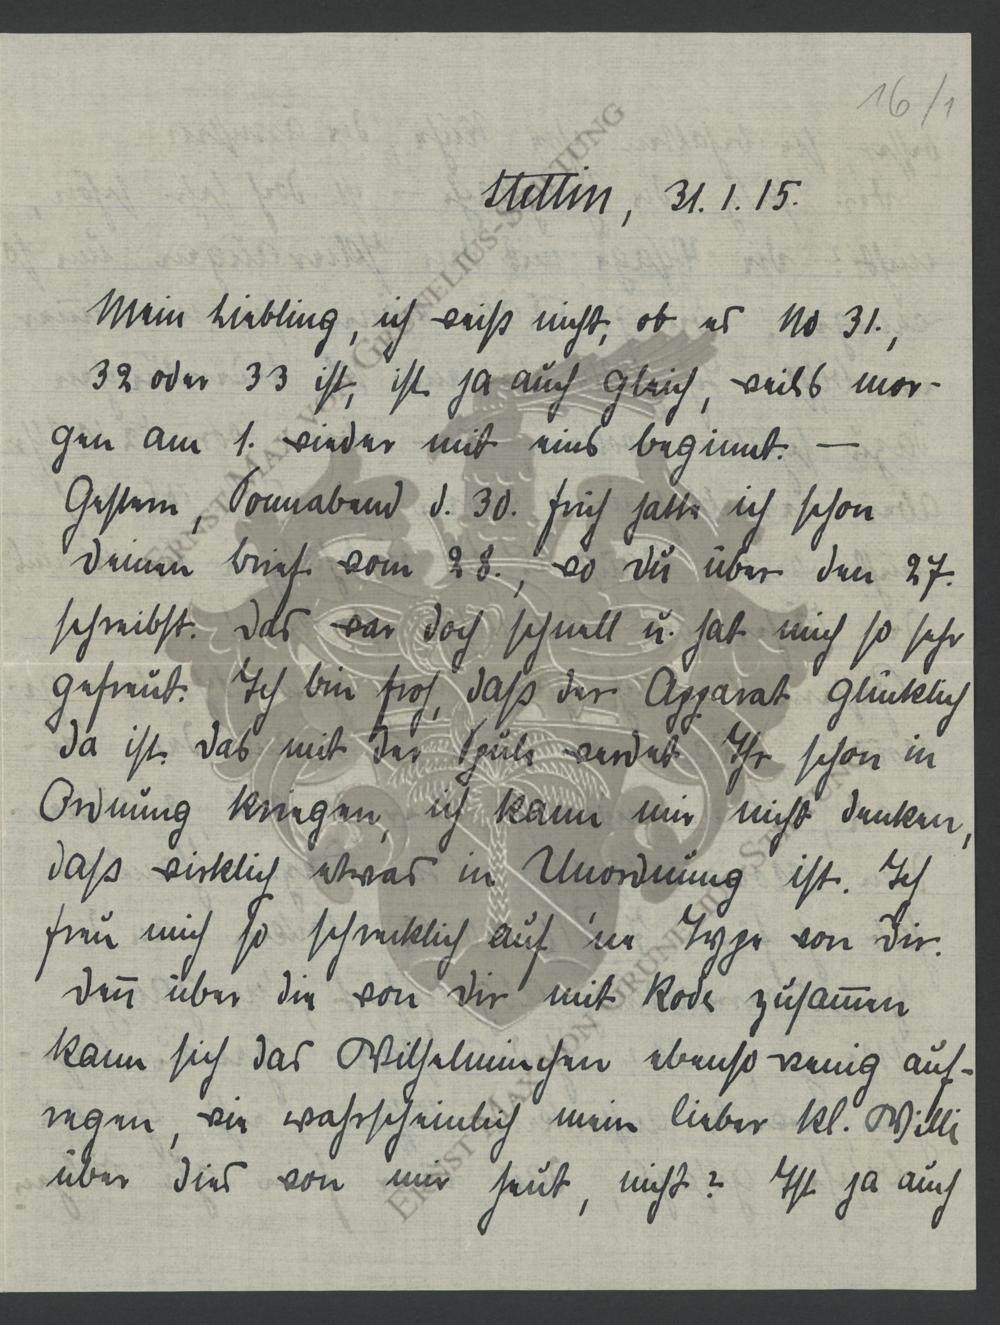 16/1
Stettin, 31. 1. 15.
Mein Liebling, ich weiß nicht, ob es No 31.,
32 oder 33 ist, ist ja auch gleich, weils mor-
gen am 1. wieder mit eins beginnt. —
Gestern, Sonnabend d. 30. früh hatte ich schon
Deinen Brief vom 28., wo Du über den 27.
schreibst. Das war doch schnell u. hat mich so sehr
gefreut. Ich bin froh, daß der Apparat glücklich
da ist. Das mit der Spule werdet Ihr schon in
Ordnung kriegen, ich kann mir nicht denken,
daß wirklich etwas in Unordnung ist. Ich
freu mich so schrecklich auf 'ne Type von Dir.
Den̅ über die von Dir mit Kode zusam̅en
kann sich das Wilhelminchen ebenso wenig auf-
regen, wie wahrscheinlich mein lieber kl. Willi
über dies von mir heut, nicht? Ist ja auch
ERNST MAX VON GRUNELIUS-STIFTUNG
ERNST MAX VON GRUNELIUS-STIFTUNG